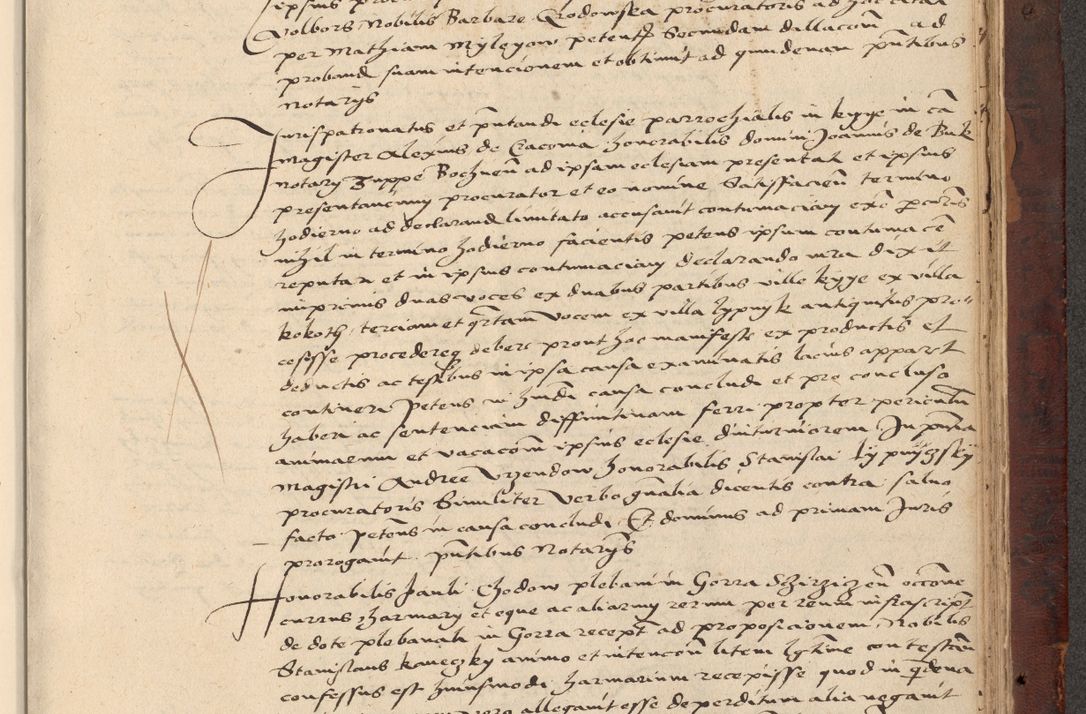 Colbors Nobilis Barbare Chodowska procuratoris ad hoc citat
per Mathiam Mylegow petent Secundam dillacom ad
proband suam intencionem et obtinuit ad quindenam pntibus
notarijs
Jurispatronatus et pntandi eclesie parrochialis in kyye in ca
Magister Alexius de Cracovia honorabilis domini Joannis de Buk
notary Zuppe Bochnen ad ipsam eclesiam presentat et ipsius
presentancium procurator et eo nomine Satisfacien termino
hodierno ad declarand limitato accusavit contumaciam exc partis
nihil in termino hodierno facientis petens ipsum contumace
reputari et in ipsius contumaciam declarando iura dixit
inprimis duas voces ex duabus partibus ville kyye ex villa
kokoth terciam et qrtam vocem ex villa lypnyk antiquitus pro
cesisse procedereq debere prout hoc manifeste ex productis et
deductis ac testibus in ipsa causa examinatis lacius apparet
contineri petens in hmdi causa concludi et pro concluso
haberi ac sentenciam diffinitivam ferri propter periculum
animarum et vacacom ipsius eclesie diuturniorem In pntia
Magistri Andree Vzendow honorabilis Stanislai lypnyczsky
procuratoris Similiter verbo gnalia dicentis contra salvo
facto petens in causa concludi Et dominus ad primam Juris
prorogavit pntibus Notarijs
Honorabilis Pauli Chodow plebani in Gorra Schirziczen occone
currus harmary et eque ac aliarum rerum per reum infrascript
de dote plebanali in Gorra recept ad proposicionem Nobilis
Stanislaus kaneczky animo et intencon litem lgtime contestan
confessus est huiusmodi harmarium recepisse quod in qrdena
vero allegavit esse deperditum alia negavit